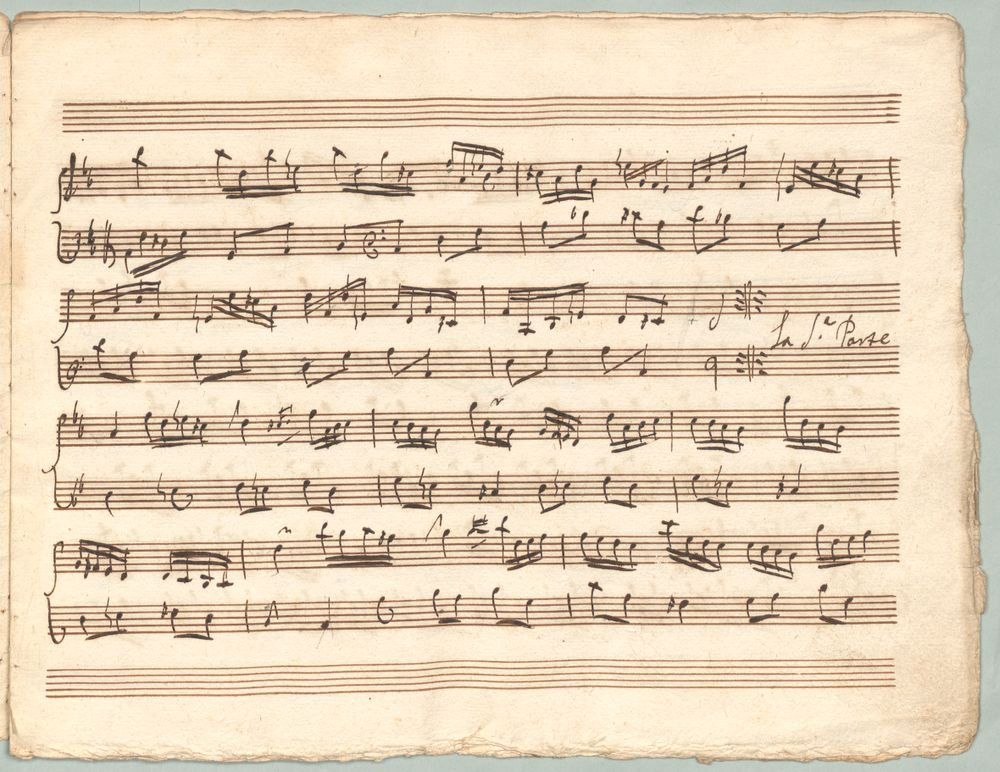 La S.ª Parte